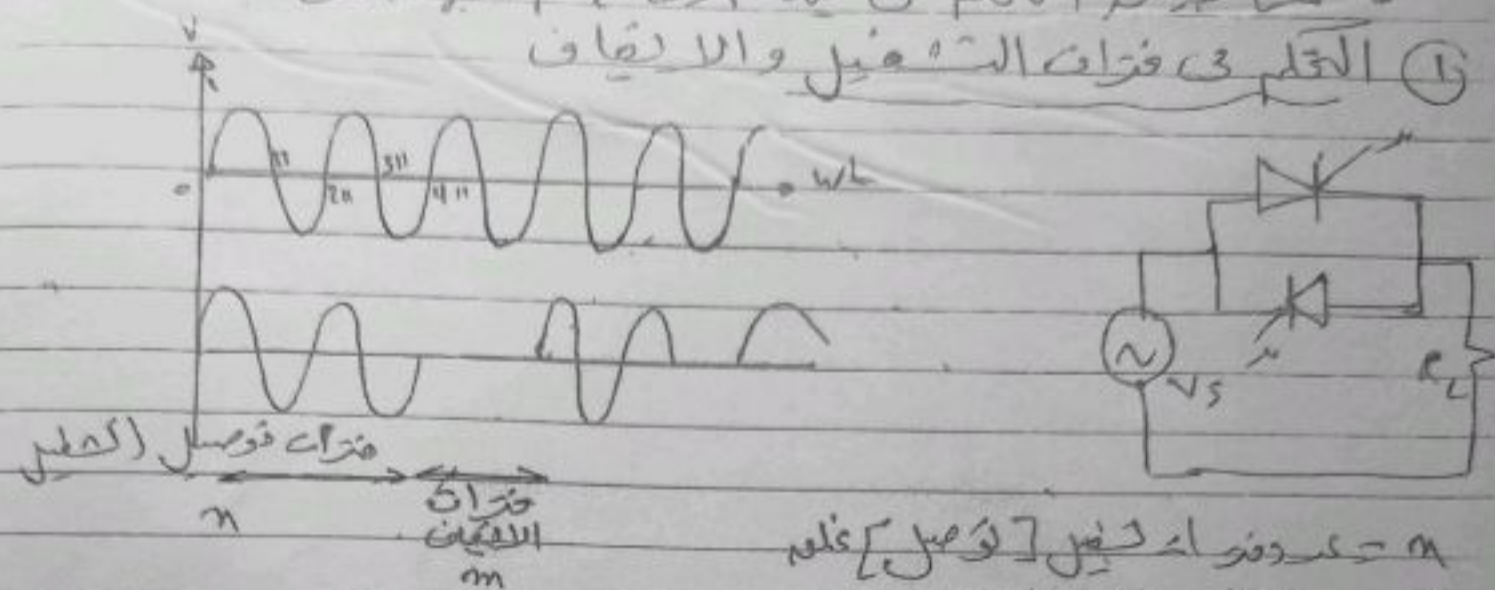 ① التحكم فى فترات التشغيل والايقاف
V
0
π
2π
3π
4π
wt
Vs
RL
فترات توصيل التشغيل
n
فترات
الايقاف
m
n = عدد فترات تشغيل [توصيل]